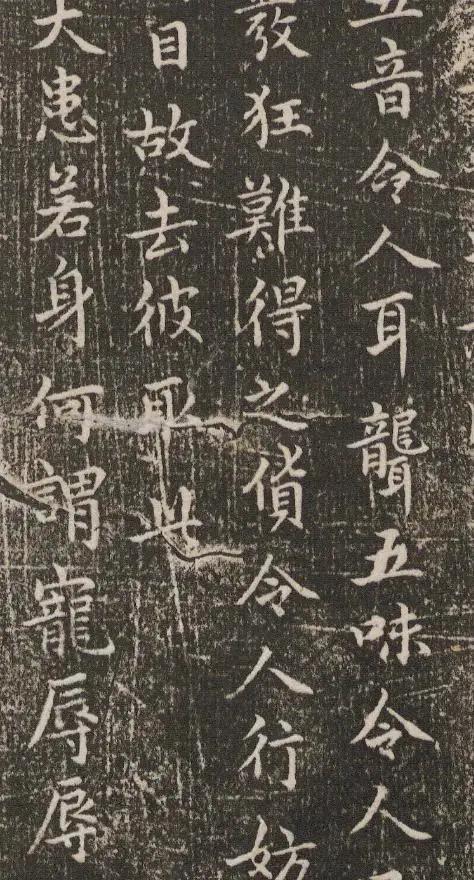 五音令人耳聾五味令人
發狂難得之貨令人行妨
目故去彼取此
大患若身何謂寵辱辱